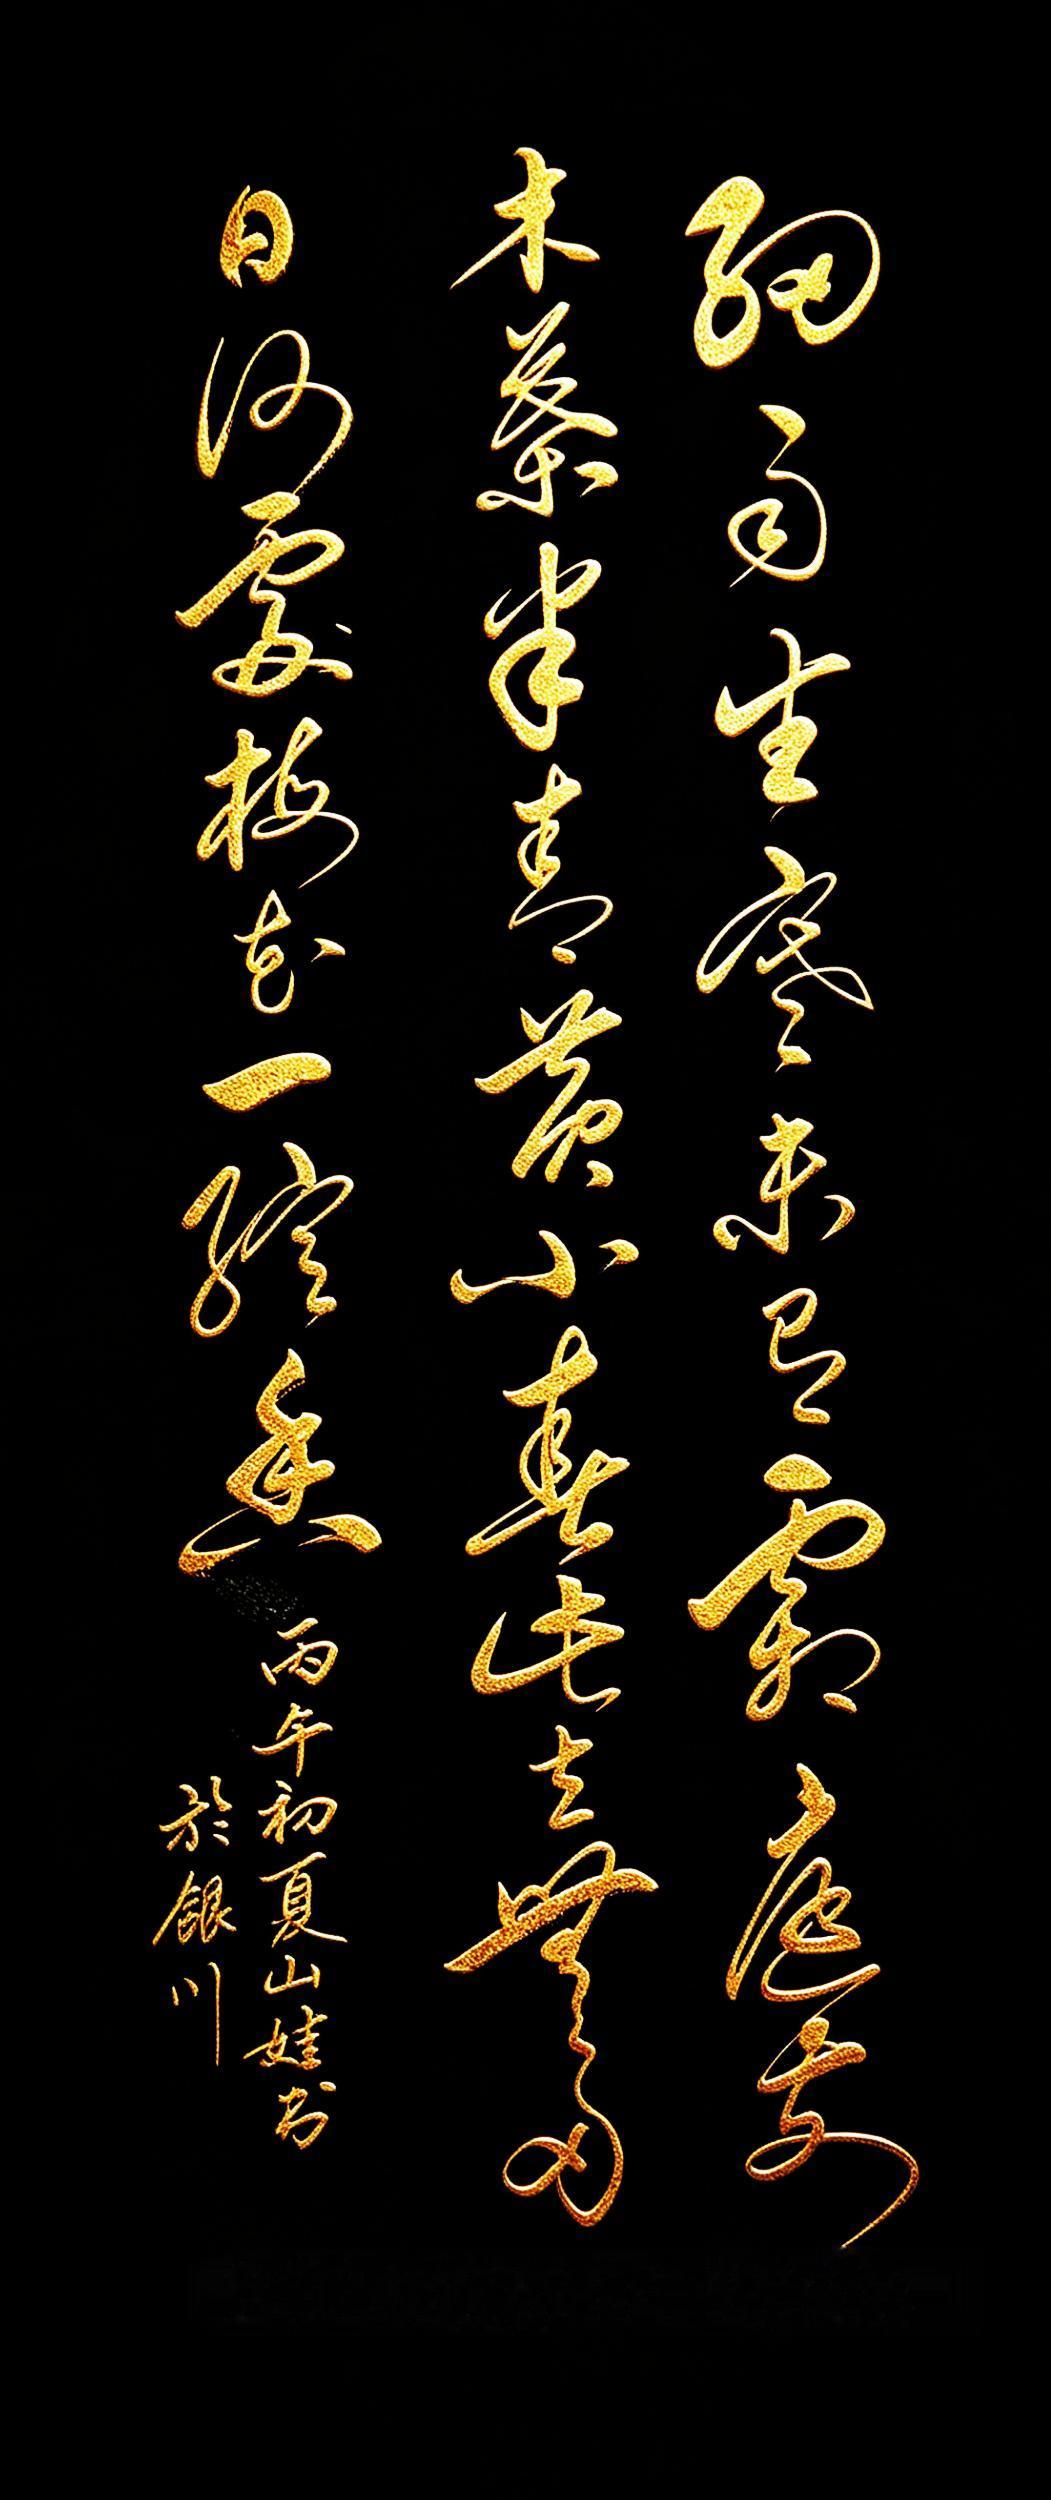 細雨生寒未有霜庭前
木葉半青黃小春此去無多
日何處梅花一綻香
丙午初夏山娃书
於銀川